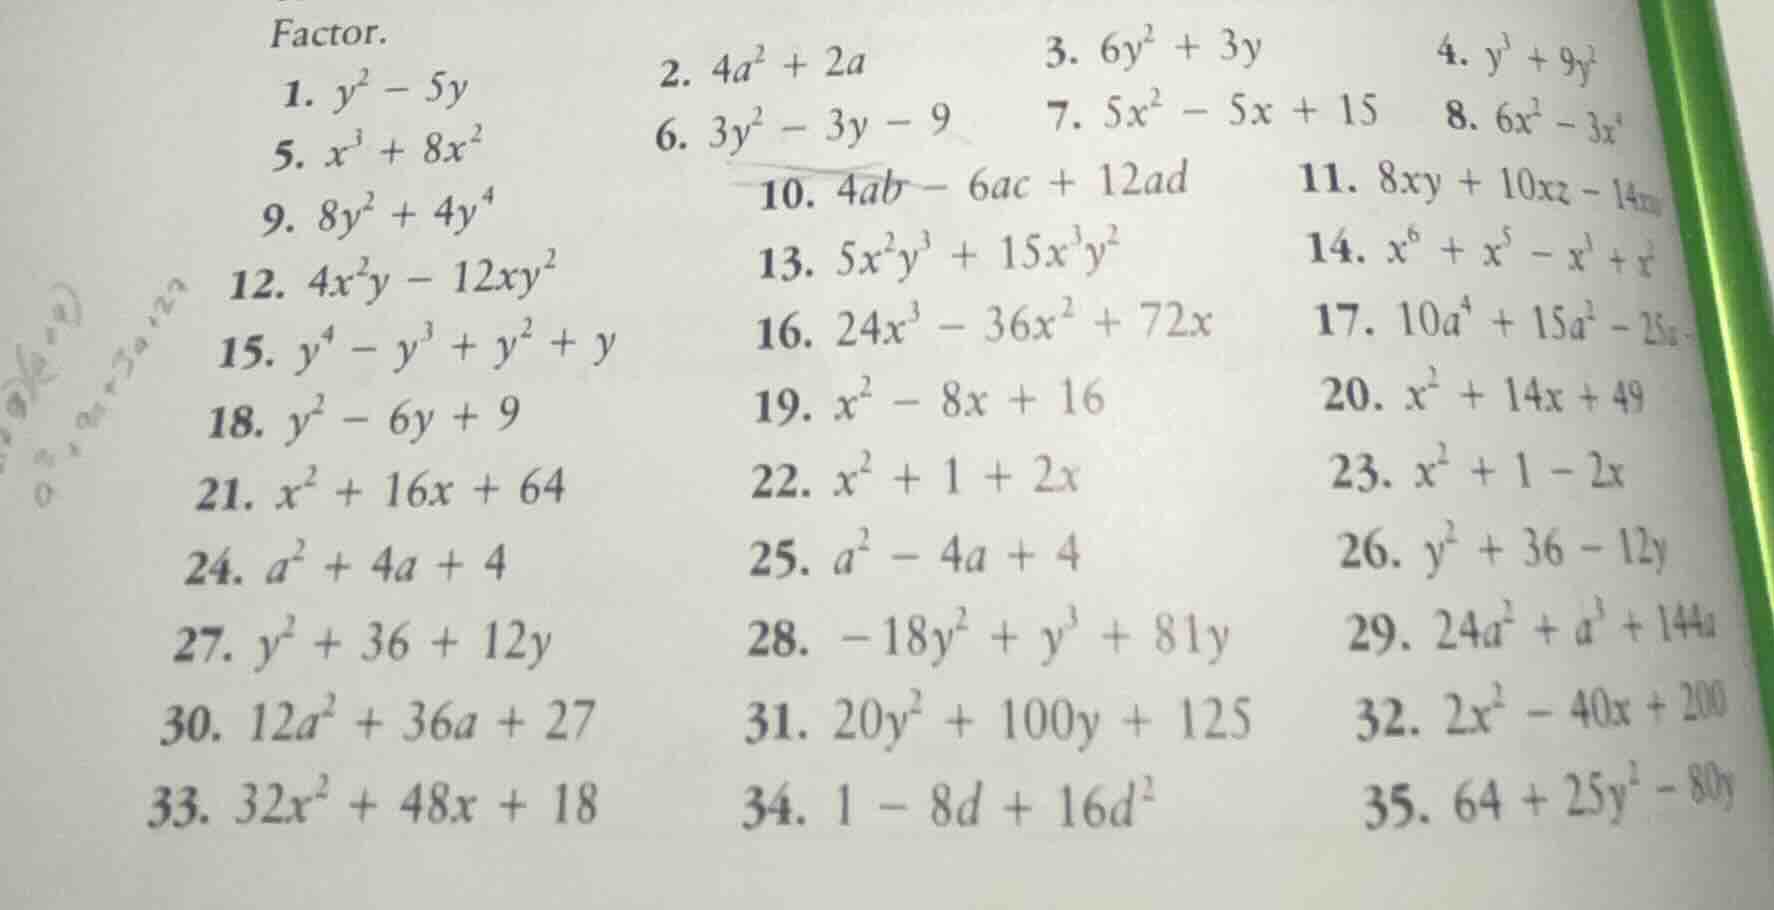 Factor.
1. y² − 5y 2. 4a² + 2a 3. 6y² + 3y 4. y³ + 9y²
5. x³ + 8x² 6. 3y² − 3y − 9 7. 5x² − 5x + 15 8. 6x² − 3x⁴
9. 8y² + 4y⁴ 10. 4ab − 6ac + 12ad 11. 8xy + 10xz −
12. 4x²y − 12xy² 13. 5x²y³ + 15x³y² 14. x⁶ + x⁵ − x³ + x²
15. y⁴ − y³ + y² + y 16. 24x³ − 36x² + 72x 17. 10a⁴ + 15a² − 25a
18. y² − 6y + 9 19. x² − 8x + 16 20. x² + 14x + 49
21. x² + 16x + 64 22. x² + 1 + 2x 23. x² + 1 − 2x
24. a² + 4a + 4 25. a² − 4a + 4 26. y² + 36 − 12y
27. y² + 36 + 12y 28. −18y² + y³ + 81y 29. 24a² + a³ + 144a
30. 12a² + 36a + 27 31. 20y² + 100y + 125 32. 2x² − 40x + 200
33. 32x² + 48x + 18 34. 1 − 8d + 16d² 35. 64 + 25y² − 80y